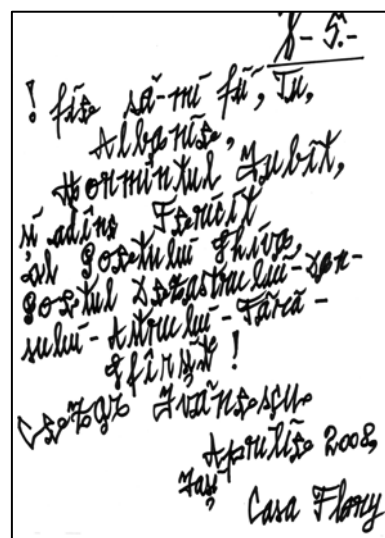 ! fie să-mi fii, Tu,
Albanie,
Mormîntul Iubit,
și adînc Fericit
al Poetului Ghiva,
Poetul Dezastrului-Den-
sului-Astrului-Fără-
Sfîrșit !
Cezar Ivănescu
Aprilie 2008,
Iași
Casa Flory